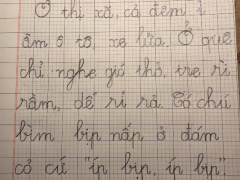 Ở thị xã, cả đêm ì
ầm ô tô, xe lửa. Ở quê
chỉ nghe gió thổ, tre rì
rầm, dế rỉ rả. Có chú
bìm bịp nấp ở đám
cỏ cứ "íp bịp, íp bịp".